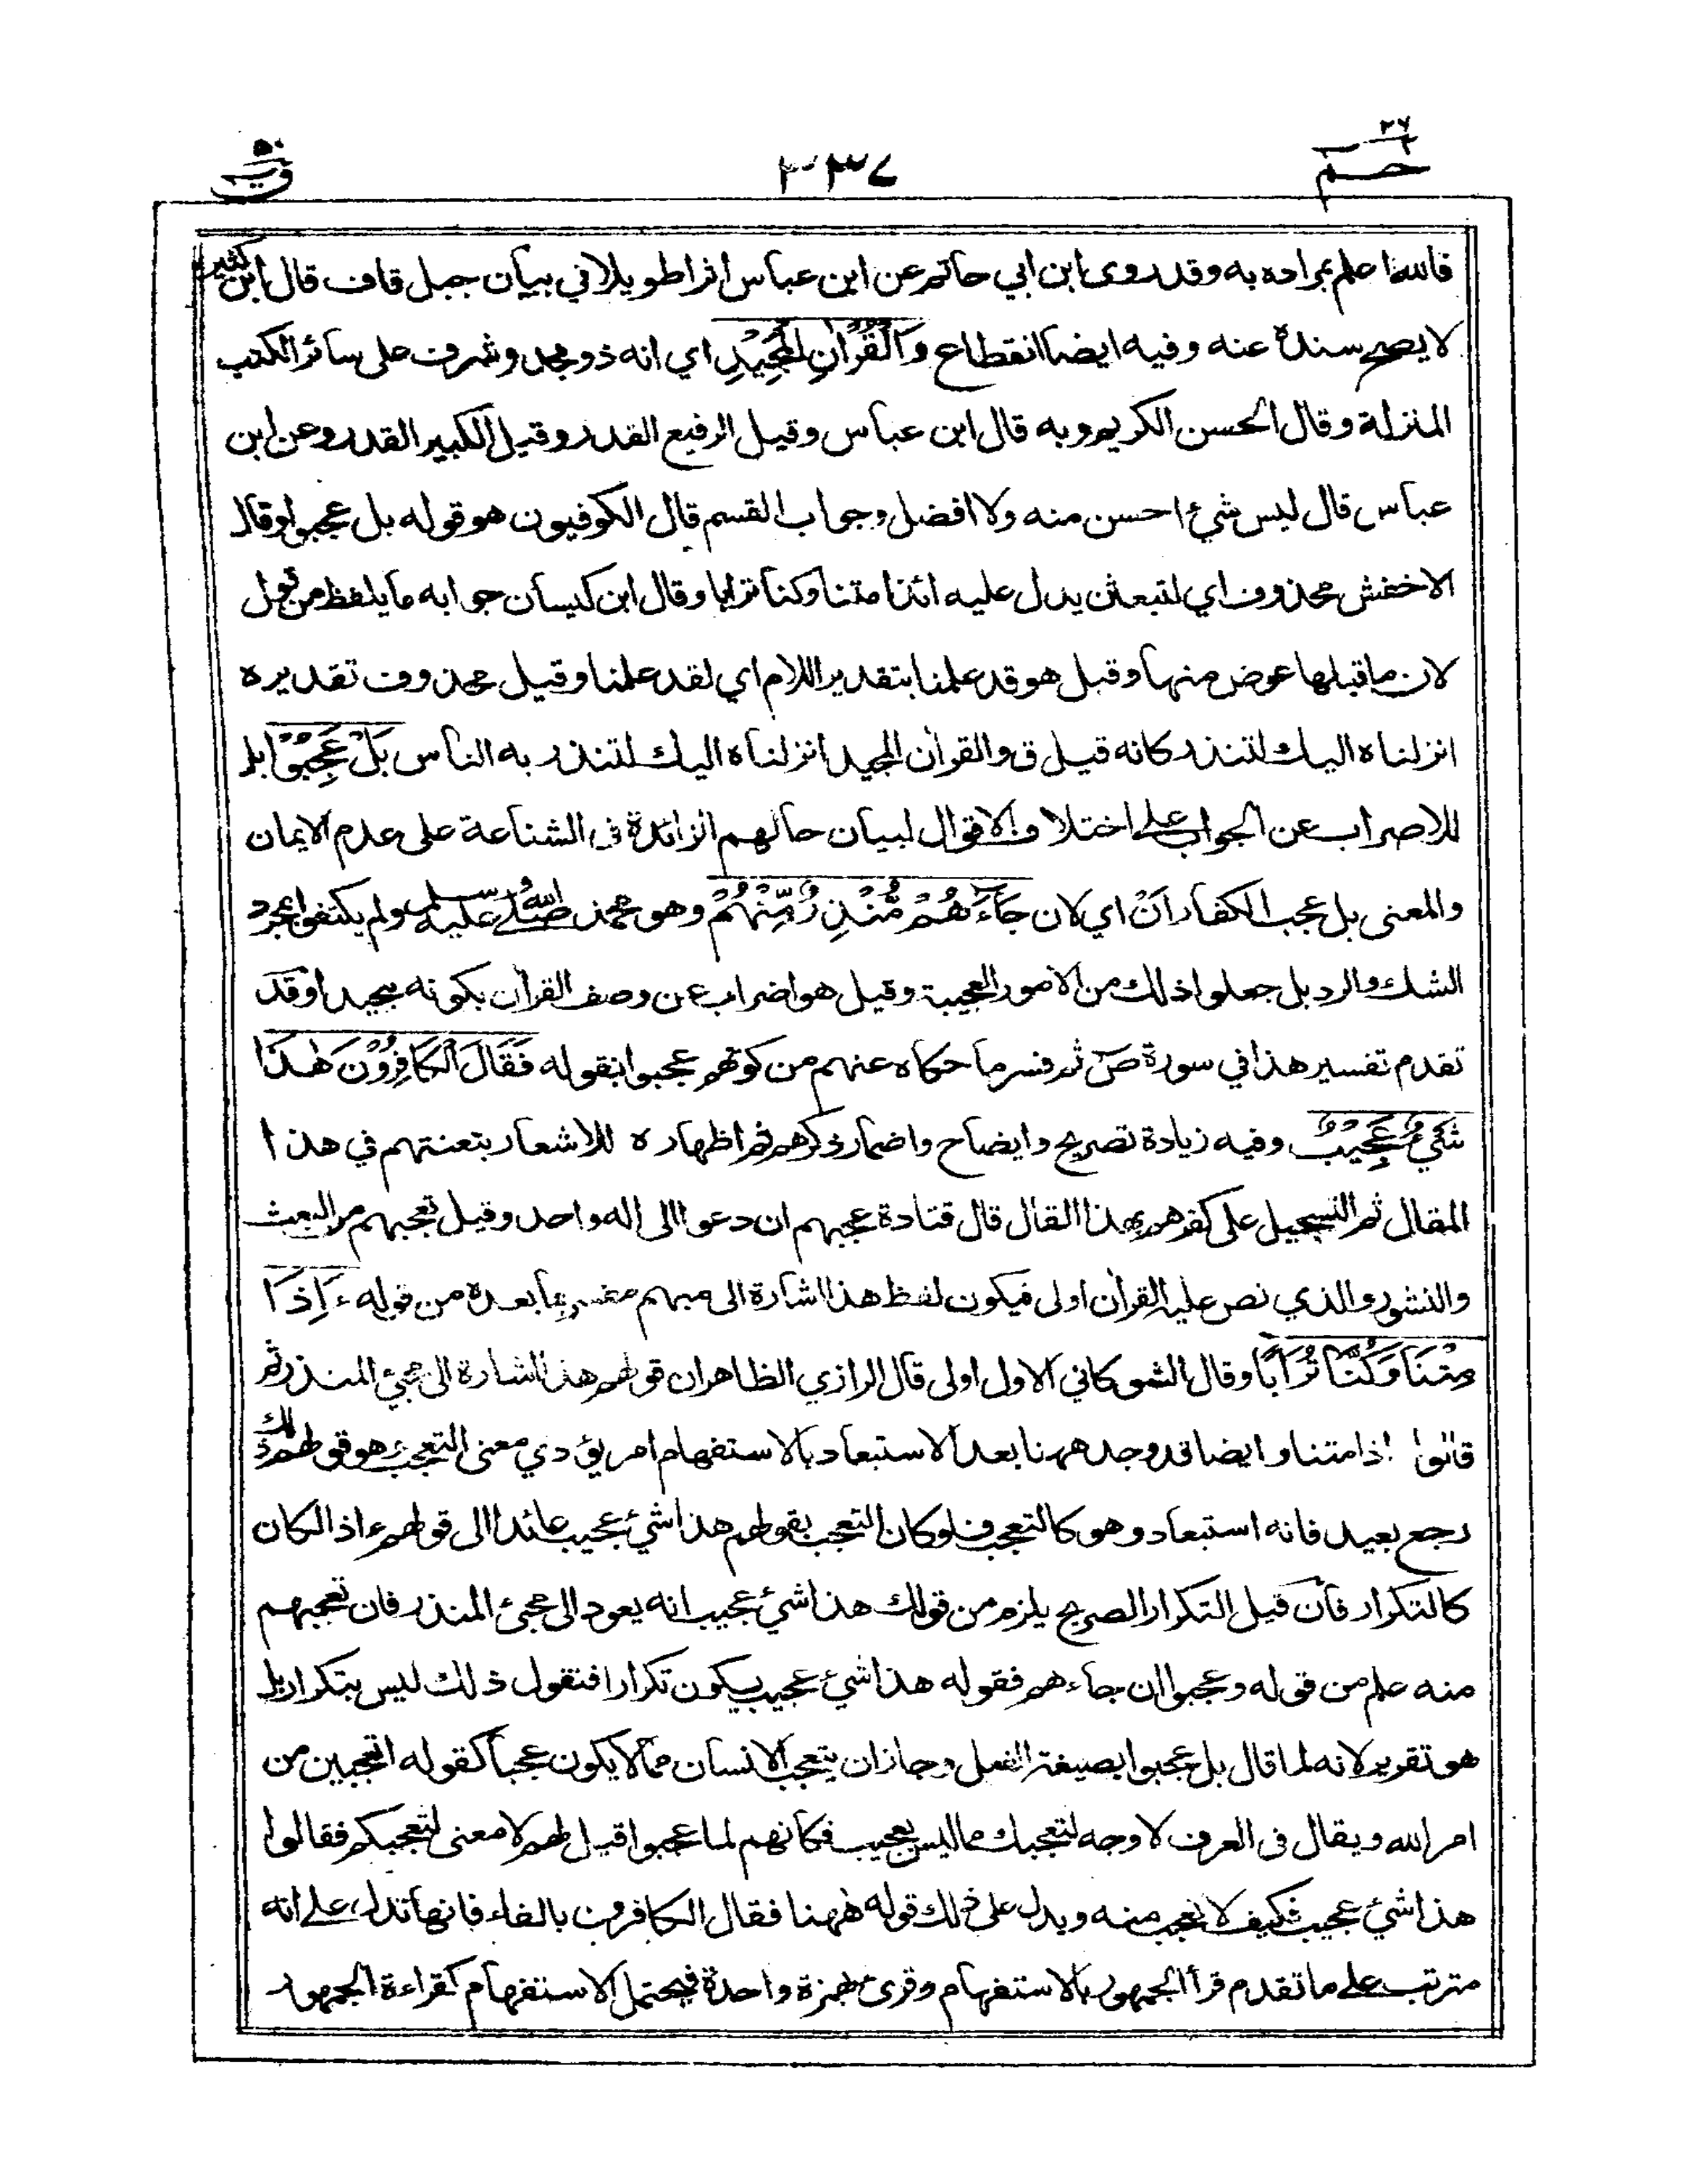 حم ٢٦
٣٣٧
ق ٥٠
فالله اعلم بمراده به وقد روى ابن ابي حاتم عن ابن عباس اثرا طويلا في بيان جبل قاف قال ابن كثير
لا يصح سنده عنه وفيه ايضا انقطاع وَالْقُرْاٰنِ الْمَجِيْدِ اي انه ذو مجد وشرف على سائر الكتب
المنزلة وقال الحسن الكريم وبه قال ابن عباس وقيل الرفيع القدر وقيل الكبير القدر وعن ابن
عباس قال ليس شئ احسن منه ولا افضل وجواب القسم قال الكوفيون هو قوله بل عجبوا وقال
الاخفش محذوف اي لتبعثن يدل عليه ائذا متنا وكنا ترابا وقال ابن كيسان جوابه ما يلفظ من قول
لان ما قبلها عوض منها وقيل هو قد علمنا بتقدير اللام اي لقد علمنا وقيل محذوف تقديره
انزلناه اليك لتنذر كانه قيل ق والقراٰن المجيد انزلناه اليك لتنذر به الناس بَلْ عَجِبُوْٓا بل
للاضراب عن الجواب على اختلاف الاقوال لبيان حالهم الزائدة فى الشناعة على عدم الايمان
والمعنى بل عجب الكفار اَنْ اي لان جَآءَهُمْ مُّنْذِرٌ مِّنْهُمْ وهو محمد صلى الله عليه وسلم ولم يكتفوا بمجرد
الشك والرد بل جعلوا ذلك من الامور العجيبة وقيل هو اضراب عن وصف القراٰن بكونه مجيدا وقد
تقدم تفسير هذا في سورة صٓ ثم فسر ما حكاه عنهم من كونهم عجبوا بقوله فَقَالَ الْكَافِرُوْنَ هٰذَا
شَيْءٌ عَجِيْبٌ وفيه زيادة تصريح وايضاح واضمار ذكرهم ثم اظهاره للاشعار بتعنتهم في هذا
المقال ثم التسجيل على كفرهم بهذا المقال قال قتادة عجبهم ان دعوا الى اله واحد وقيل تعجبهم من البعث
والنشور والذي نص عليه القراٰن اولى فيكون لفظ هذا اشارة الى مبهم مفسر بما بعده من قوله ءَاِذَا
مِتْنَا وَكُنَّا تُرَابًا وقال الشوكاني الاول اولى قال الرازي الظاهر ان قولهم هذا اشارة الى مجئ المنذر ثم
قالوا اذا متنا وايضا قد وجد ههنا بعد الاستبعاد بالاستفهام امر يؤدي معنى التعجب وهو قولهم ذلك
رجع بعيد فانه استبعاد وهو كالتعجب فلو كان التعجب بقولهم هذا شئ عجيب عائدا الى قولهم ءاذا لكان
كالتكرار فان قيل التكرار الصريح يلزم من قولك هذا شئ عجيب انه يعود الى مجئ المنذر فان تعجبهم
منه علم من قوله وعجبوا ان جاءهم فقوله هذا شئ عجيب يكون تكرارا فنقول ذلك ليس بتكرار بل
هو تقرير لانه لما قال بل عجبوا بصيغة الفعل وجاز ان يتعجب الانسان مما لا يكون عجبا كقوله اتعجبين من
امر الله ويقال فى العرف لا وجه لتعجبك مما ليس بعجيب فكانهم لما عجبوا قيل لهم لا معنى لتعجبكم فقالوا
هذا شئ عجيب فكيف لا نعجب منه ويدل على ذلك قوله ههنا فقال الكافرون بالفاء فانها تدل على انه
مترتب على ما تقدم قرأ الجمهور بالاستفهام وقرئ بهمزة واحدة فيحتمل الاستفهام كقراءة الجمهور